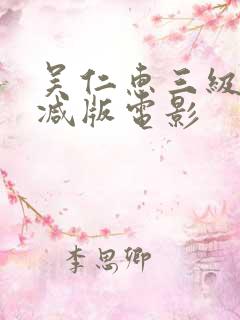 吴仁惠三級
减版電影
李思卿